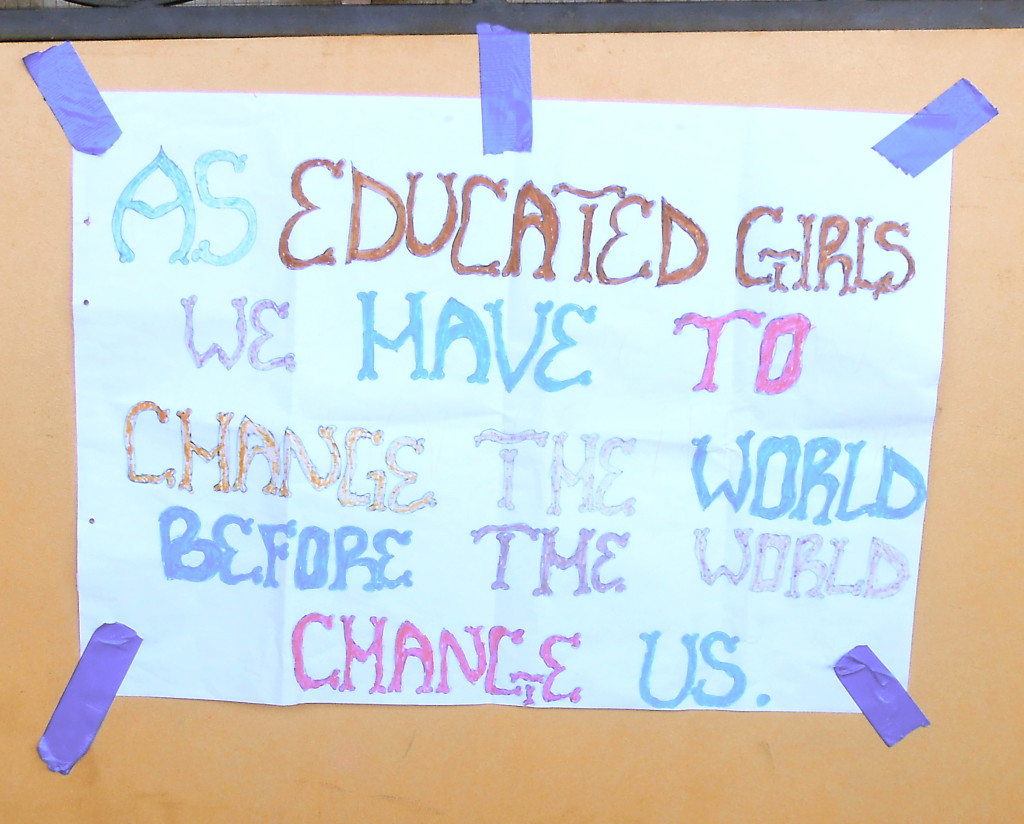 AS EDUCATED GIRLS
WE HAVE TO
CHANGE THE WORLD
BEFORE THE WORLD
CHANGE US.